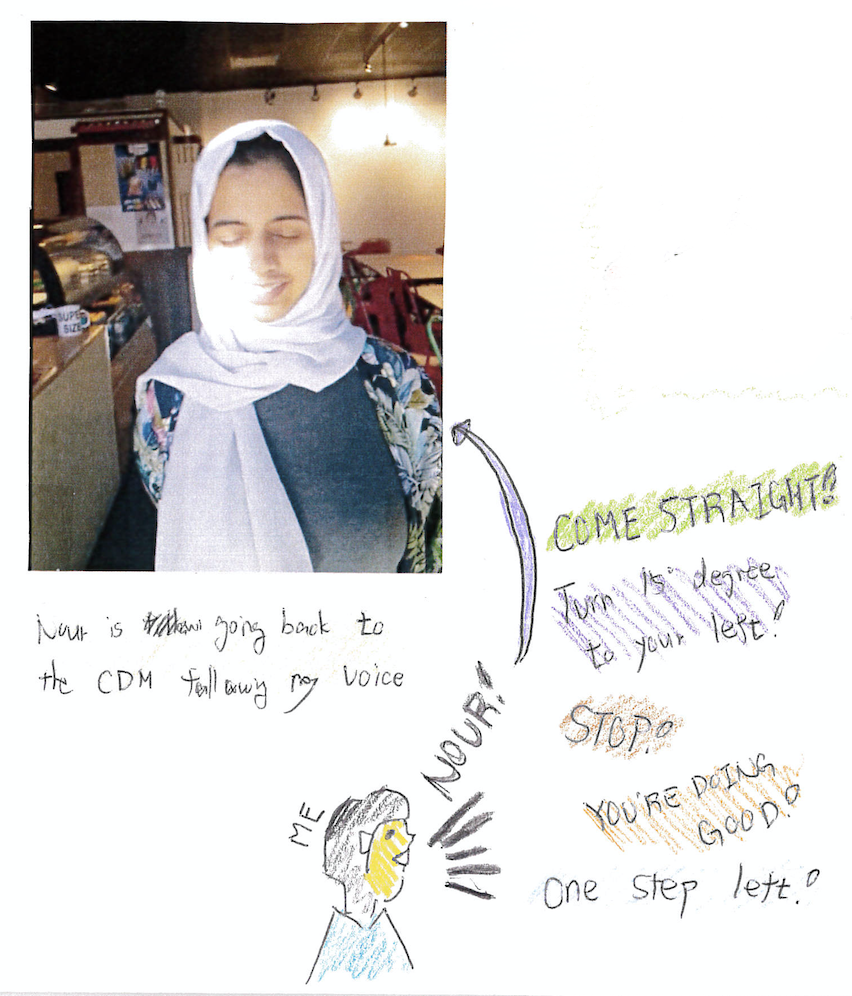 SUPER
SIZE
Nour is going back to
the CDM following my voice
COME STRAIGHT!
Turn 15° degree
to your left!
STOP!
YOU'RE DOING
GOOD!
One step left!
NOUR!
ME